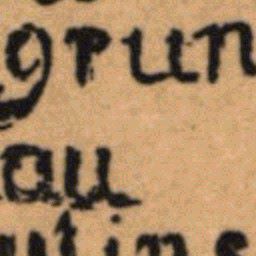 grun
au
utins